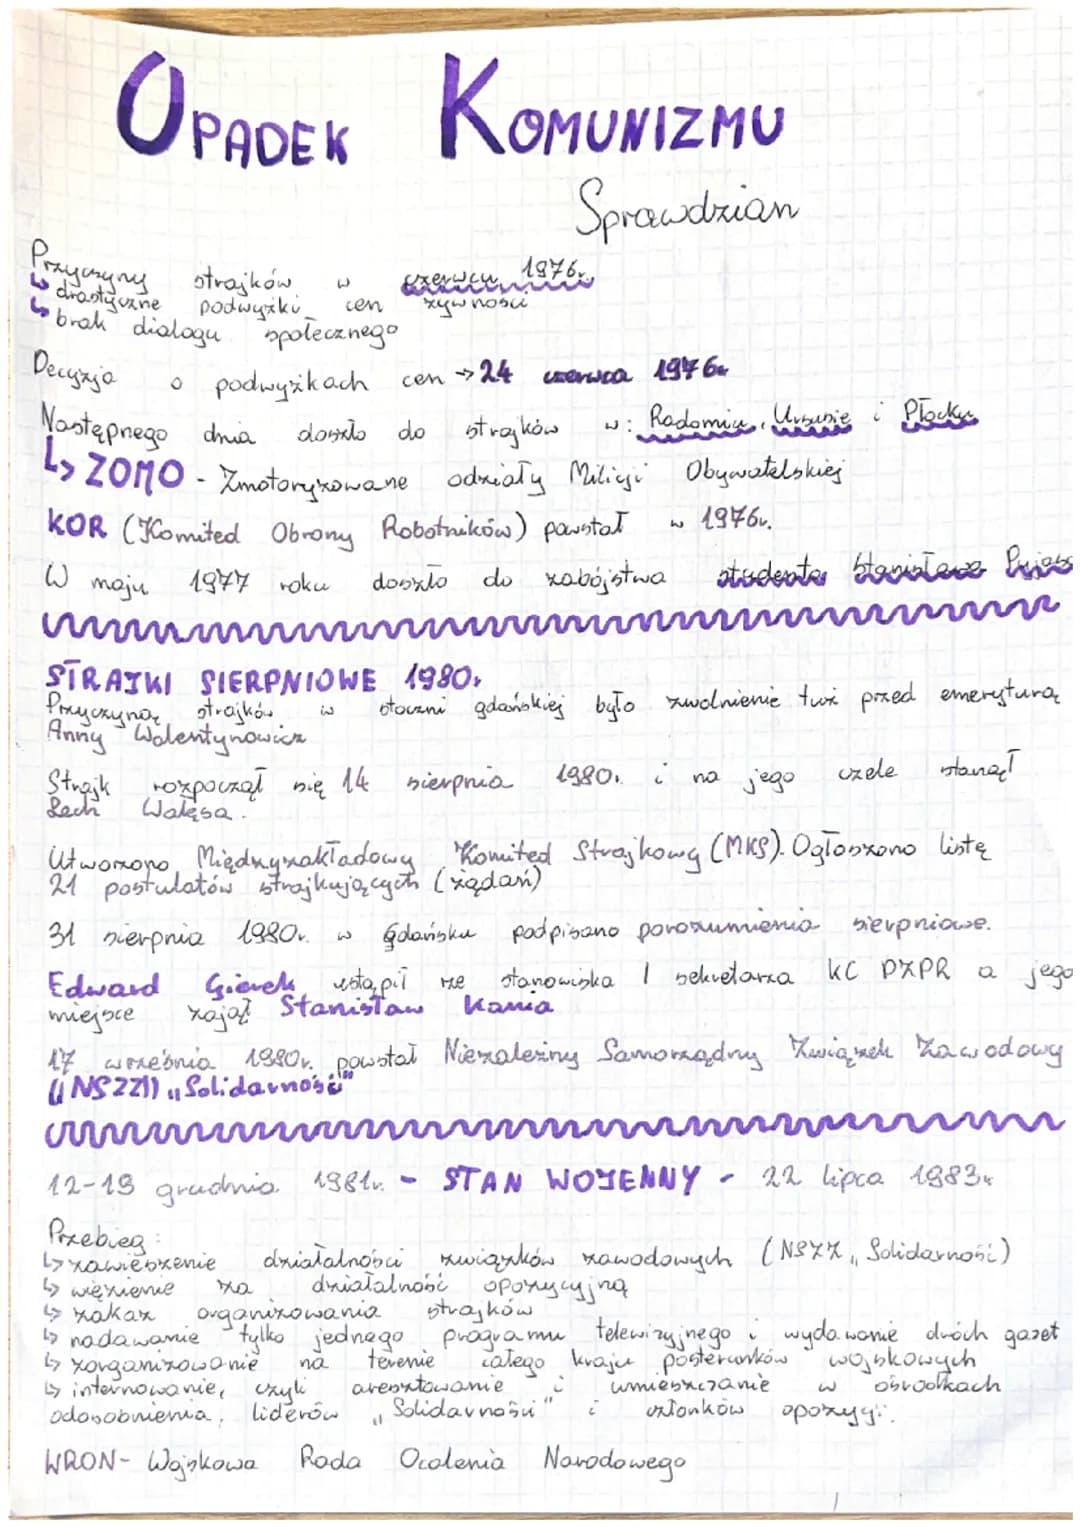 UPADEK KOMUNIZMU
Sprawdzian
Przyczyny strajków w czerwcu 1976r.
↳ drastyczne podwyżki cen żywności
↳ brak dialogu społecznego
Decyzja o podwyżkach cen → 24 czerwca 1976r
Następnego dnia doszło do strajków w: Radomiu, Ursusie i Płocku
↳ ZOMO - Zmotoryzowane odziały Milicji Obywatelskiej
KOR (Komited Obrony Robotników) powstał w 1976r.
W maju 1977 roku doszło do zabójstwa studenta Stanisława
STRAJKI SIERPNIOWE 1980r
Przyczyną strajków w stoczni gdańskiej było zwolnienie tuż przed emeryturą
Anny Walentynowicz
Strajk rozpoczął się 14 sierpnia 1980r. i na jego czele stanął
Lech Wałęsa.
Utworzono Międzyzakładowy Komited Strajkowy (MKS). Ogłoszono listę
21 postulatów strajkujących (żądań)
31 sierpnia 1980r. w Gdańsku podpisano porozumienia sierpniowe.
Edward Gierek ustąpił ze stanowiska I sekretarza KC PZPR a jego
miejsce zajął Stanisław Kania
17 września 1980r. powstał Niezależny Samorządny Związek Zawodowy
(NSZZ) „Solidarność"
12-13 grudnia 1981r. - STAN WOJENNY - 22 lipca 1983r
Przebieg:
↳ zawieszenie działalności związków zawodowych (NSZZ „Solidarność)
↳ więzienie za działalność opozycyjną
↳ zakaz organizowania strajków
↳ nadawanie tylko jednego programu telewizyjnego i wydawanie dwóch gazet
↳ zorganizowanie na terenie całego kraju posterunków wojskowych
↳ internowanie, czyli aresztowanie i umieszczanie w ośrodkach
odosobnienia, liderów „Solidarności" i członków opozycji.
WRON - Wojskowa Rada Ocalenia Narodowego